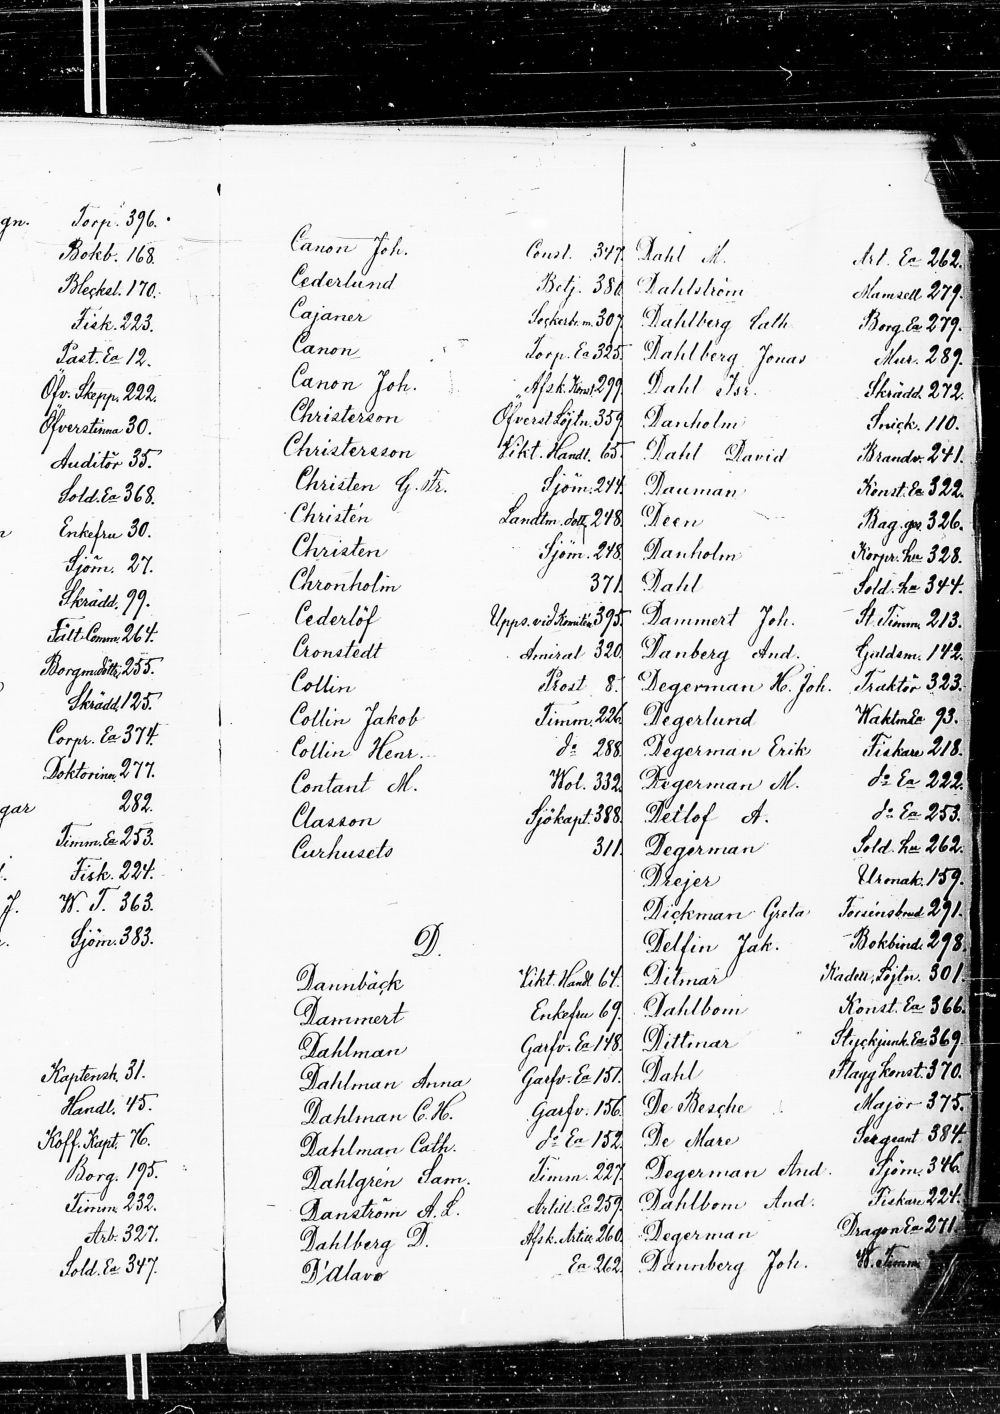 gn. Torp. 396.
Bokb. 168.
Blecksl. 170.
Fisk. 223.
Past. Ea 12.
Öfv. Skepp. 222.
Öfverstinna 30.
Auditör 35.
Sold. Ea 368.
Enkefru 30.
Sjöm. 27.
Skrädd. 99.
Fält Comm. 264.
Borgm. dottr. 255.
Skrädd. 125.
Corpr. Ea 374.
Doktorinn. 277.
gar 282.
Timm. Ea 253.
Fisk. 224.
J. W. T. 363.
Sjöm. 383.
Kaptensh. 31.
Handl. 45.
Koff. Kapt. 76.
Borg. 195.
Timm. 232.
Arb. 327.
Sold. Ea 347.
Canon Joh. Const. 347.
Cederlund Betj. 380
Cajaner Sockerb. m. 307.
Canon Torp. Ea 325.
Canon Joh. Afsk. Konst. 299.
Christerson Öfverst Löjtn. 359.
Christersson Vikt. Handl. 65.
Christen G. Fr. Sjöm. 244.
Christén Landtm. dott. 248.
Christen Sjöm. 248.
Chronholm 371.
Cederlöf Upps. vid 395.
Cronstedt Amiral 320.
Collin Prost 8.
Collin Jakob Timm. 226.
Collin Henr. do 288.
Contant M. Vol. 332.
Classon Sjökapt. 388.
Curhusets 311.
D.
Dannbäck Vikt. Handl. 64.
Dammert Enkefru 69.
Dahlman Garfv. Ea 148.
Dahlman Anna Garfv. Ea 151.
Dahlman C. H. Garfv. 156.
Dahlman Cath. do Ea 152.
Dahlgrén Sam. Timm. 227.
Danström A. L. Artill. Ea 259.
Dahlberg D. Afsk. 260.
D'Alavo Ea 262.
Dahl M. Art. Ea 262.
Dahlström Mamsell 279.
Dahlberg Cath. Borg. Ea 279.
Dahlberg Jonas Mur. 289.
Dahl Isr. Skrädd. 272.
Danholm Snick. 110.
Dahl David Brandv. 241.
Dauman Konst. Ea 322.
Deen Bag. ges. 326.
Danholm Korpr. hu 328.
Dahl Sold. hu 344.
Dammert Joh. St. Timm. 213.
Danberg And. Guldsm. 142.
Degerman H. Joh. Traktör 323.
Degerlund Waktm. Ea 93.
Degerman Erik Fiskare 218.
Degerman M. do Ea 222.
Detlof A. do Ea 253.
Degerman Sold. hu 262.
Drejer Urmak. 159.
Dickman Greta 291.
Delfin Jak. Bokbind. 298.
Ditmar Kadett, Löjtn. 301.
Dahlbom Konst. Ea 366.
Dittmar Styckjunk. Ea 369.
Dahl Flagg konst. 370.
De Besche Major 375.
De Mare Sergeant 384.
Degerman And. Sjöm. 346.
Dahlbom And. Fiskare 224.
Degerman Dragon Ea 271.
Dannberg Joh. W. Timm.